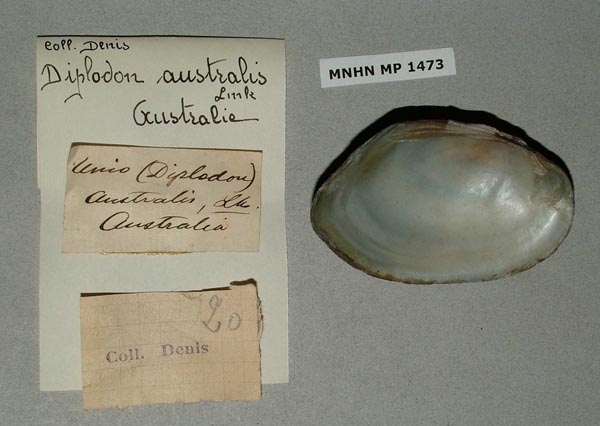 Coll. Denis
Diplodon australis
Lmk
Australie
MNHN MP 1473
Unio (Diplodon)
Australis, Lk.
Australia
20
Coll. Denis